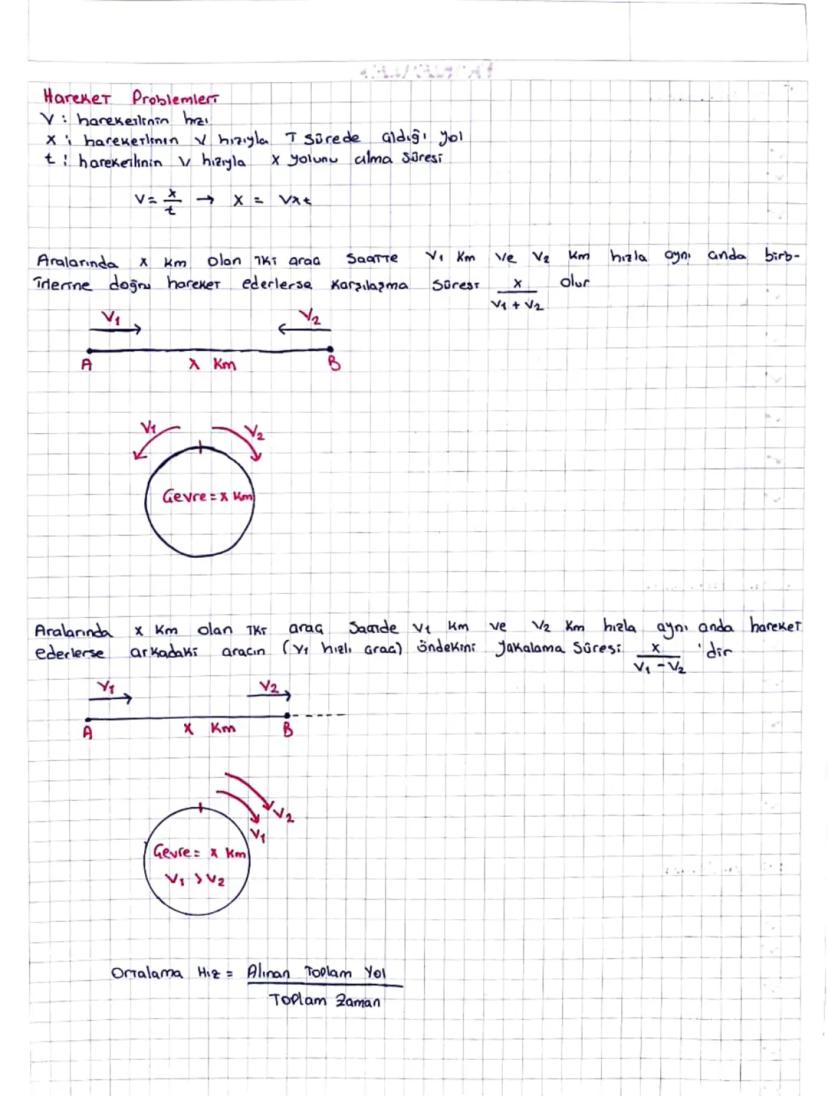 Hareket Problemleri
V : hareketlinin hızı
x : hareketlinin V hızıyla T sürede aldığı yol
t : hareketlinin V hızıyla x yolunu alma süresi
V = x/t → x = V×t
Aralarında x km olan iki araç saatte V1 km ve V2 km hızla aynı anda birb-
irlerine doğru hareket ederlerse karşılaşma süresi x/(V1 + V2) olur
V1 V2
A x km B
V1 V2
Çevre = x km
Aralarında x km olan iki araç saatde V1 km ve V2 km hızla aynı anda hareket
ederlerse arkadaki aracın (V1 hızlı araç) öndekini yakalama süresi x/(V1 - V2) 'dir
V1 V2
A x km B
V2
V1
Çevre = x km
V1 > V2
Ortalama Hız = Alınan Toplam Yol
Toplam Zaman